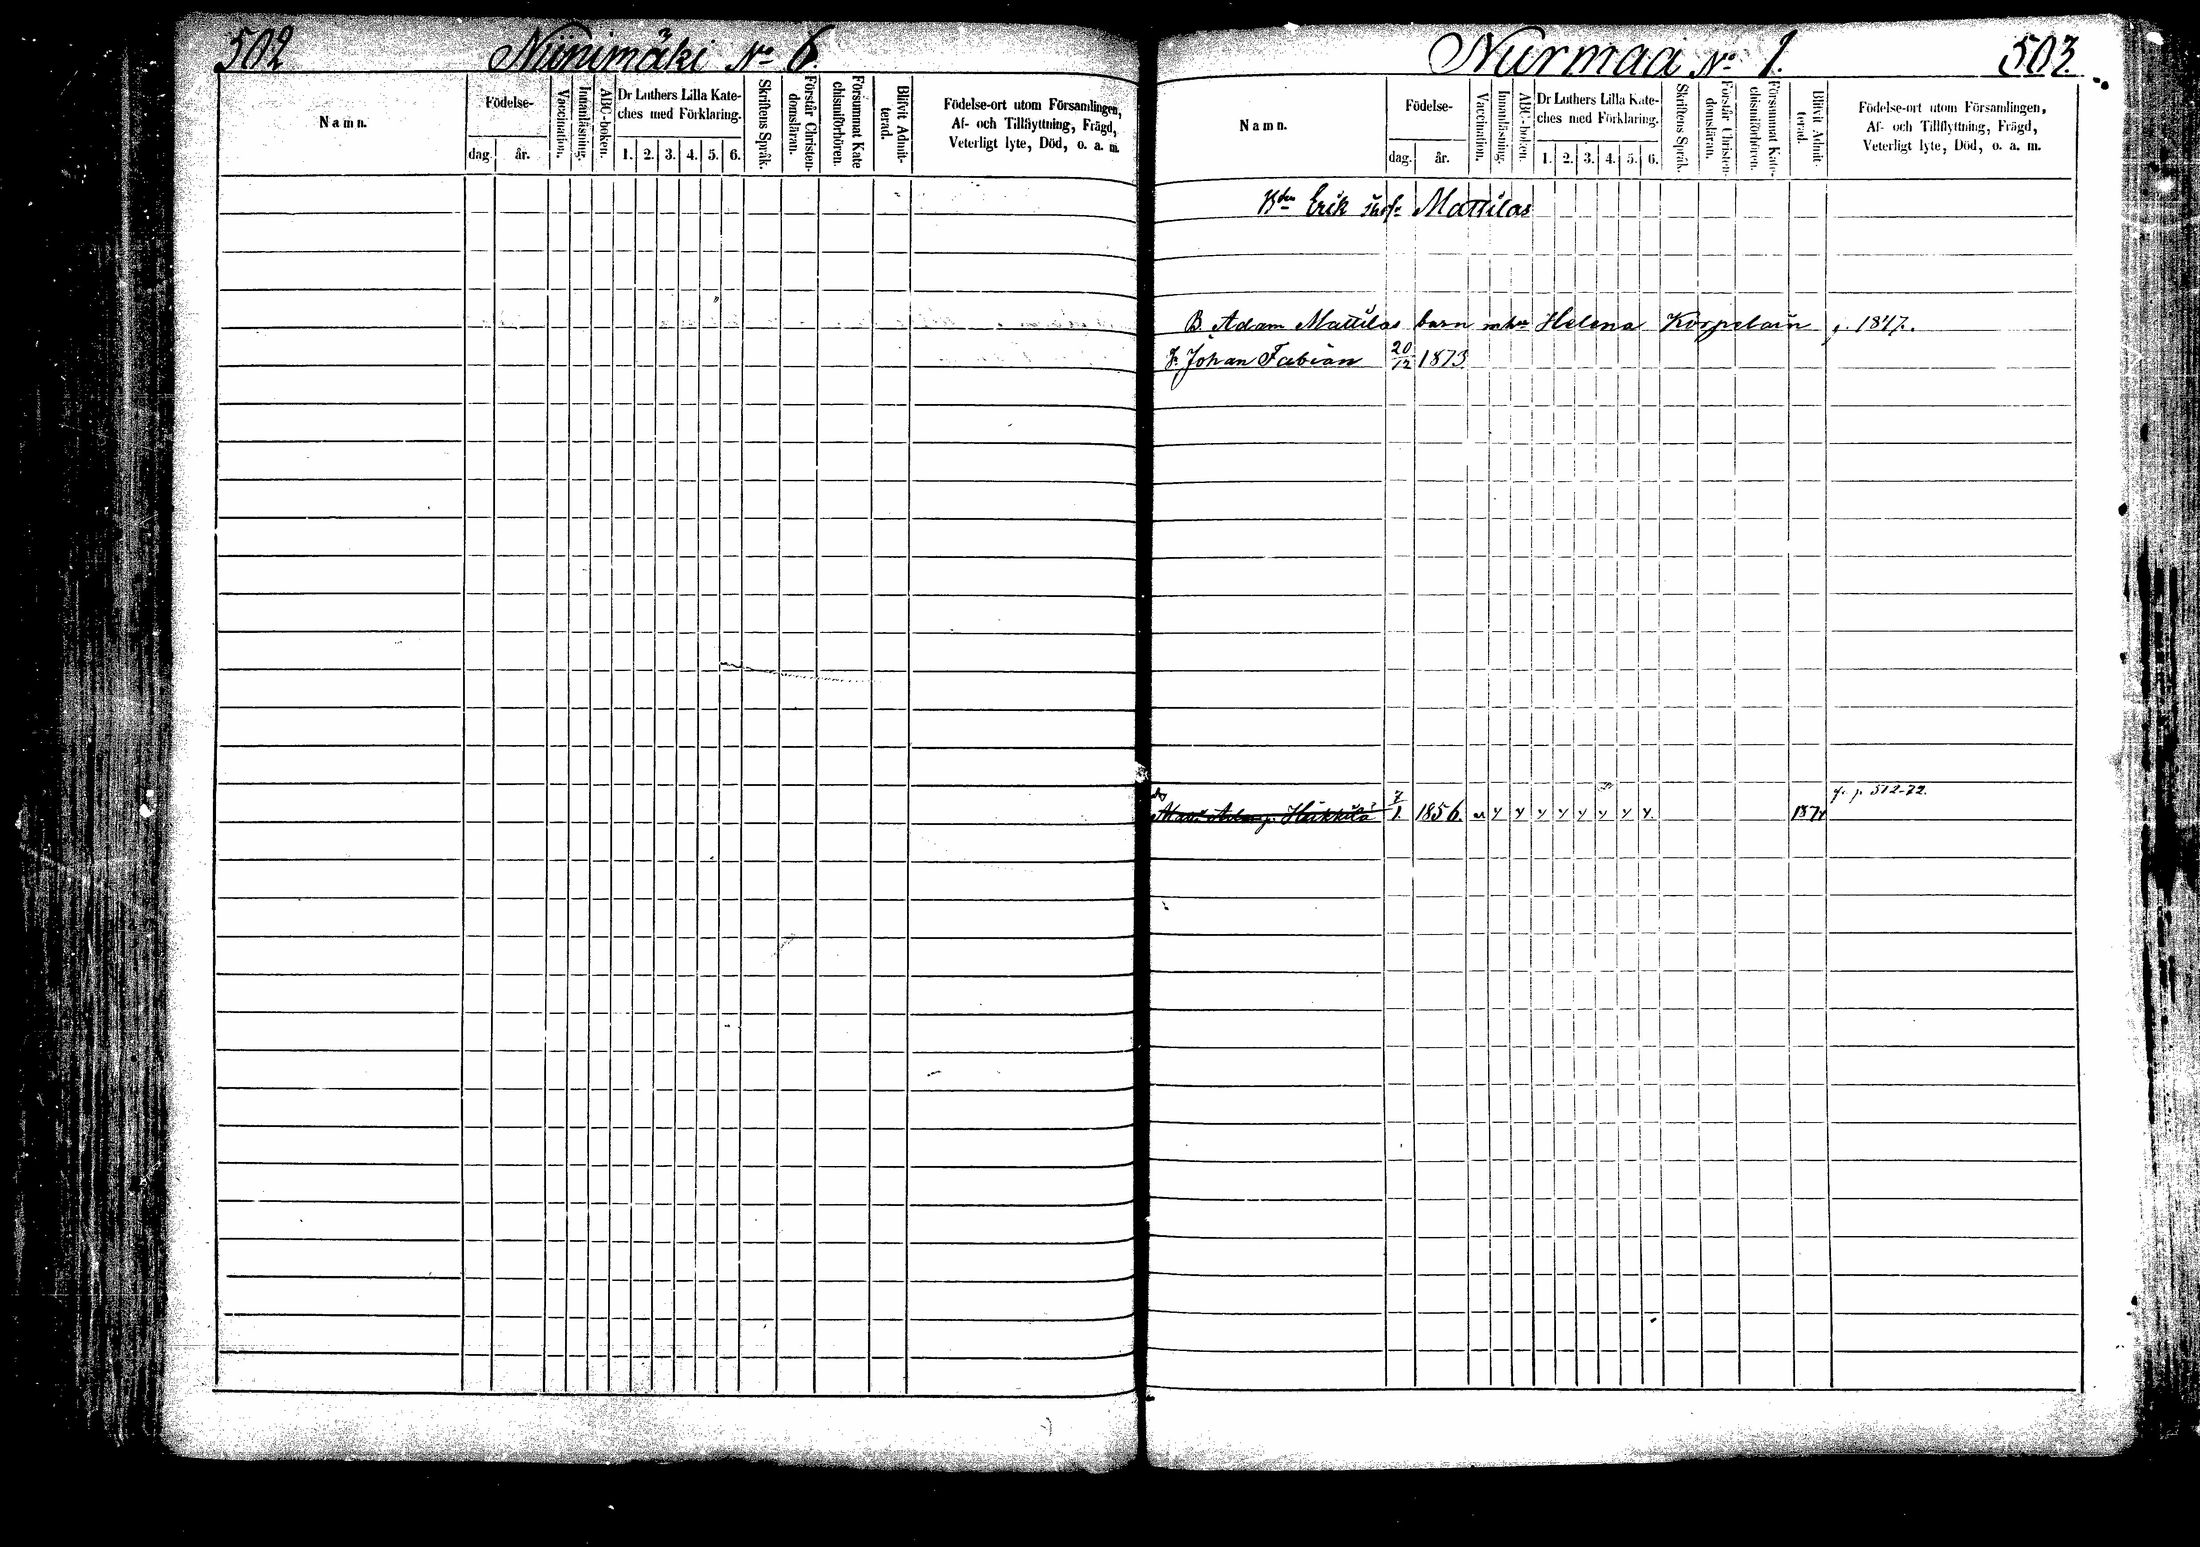 502 Niinimäki No 6.
Namn. Födelse- dag. år. Vaccination. Innanläsning. ABC-boken. Dr Luthers Lilla Kate-ches med Förklaring. 1. 2. 3. 4. 5. 6. Skriftens Språk. Förstår Christen-domsläran. Försummat Kate chismiförhören. Blifvit Admit-terad. Födelse-ort utom Församlingen, Af- och Tillflyttning, Frägd, Veterligt lyte, Död, o. a. m.
Nurmaa No 1. 503.
Namn. Födelse- dag. år. Vaccination. Innanläsning. ABC-boken. Dr Luthers Lilla Kate-ches med Förklaring. 1. 2. 3. 4. 5. 6. Skriftens Språk. Förstår Christen-domsläran. Försummat Kate-chismiförhören. Blifvit Admit-terad. Födelse-ort utom Församlingen, Af- och Tillflyttning, Frägd, Veterligt lyte, Död, o. a. m.
Bden Erik Mattilas
B. Adam Mattilas barn Helena Korpelain f. 1847.
Johan Fabian 20/12 1873
Heikkilä 7/1. 1856. 1874
p. 512-72.